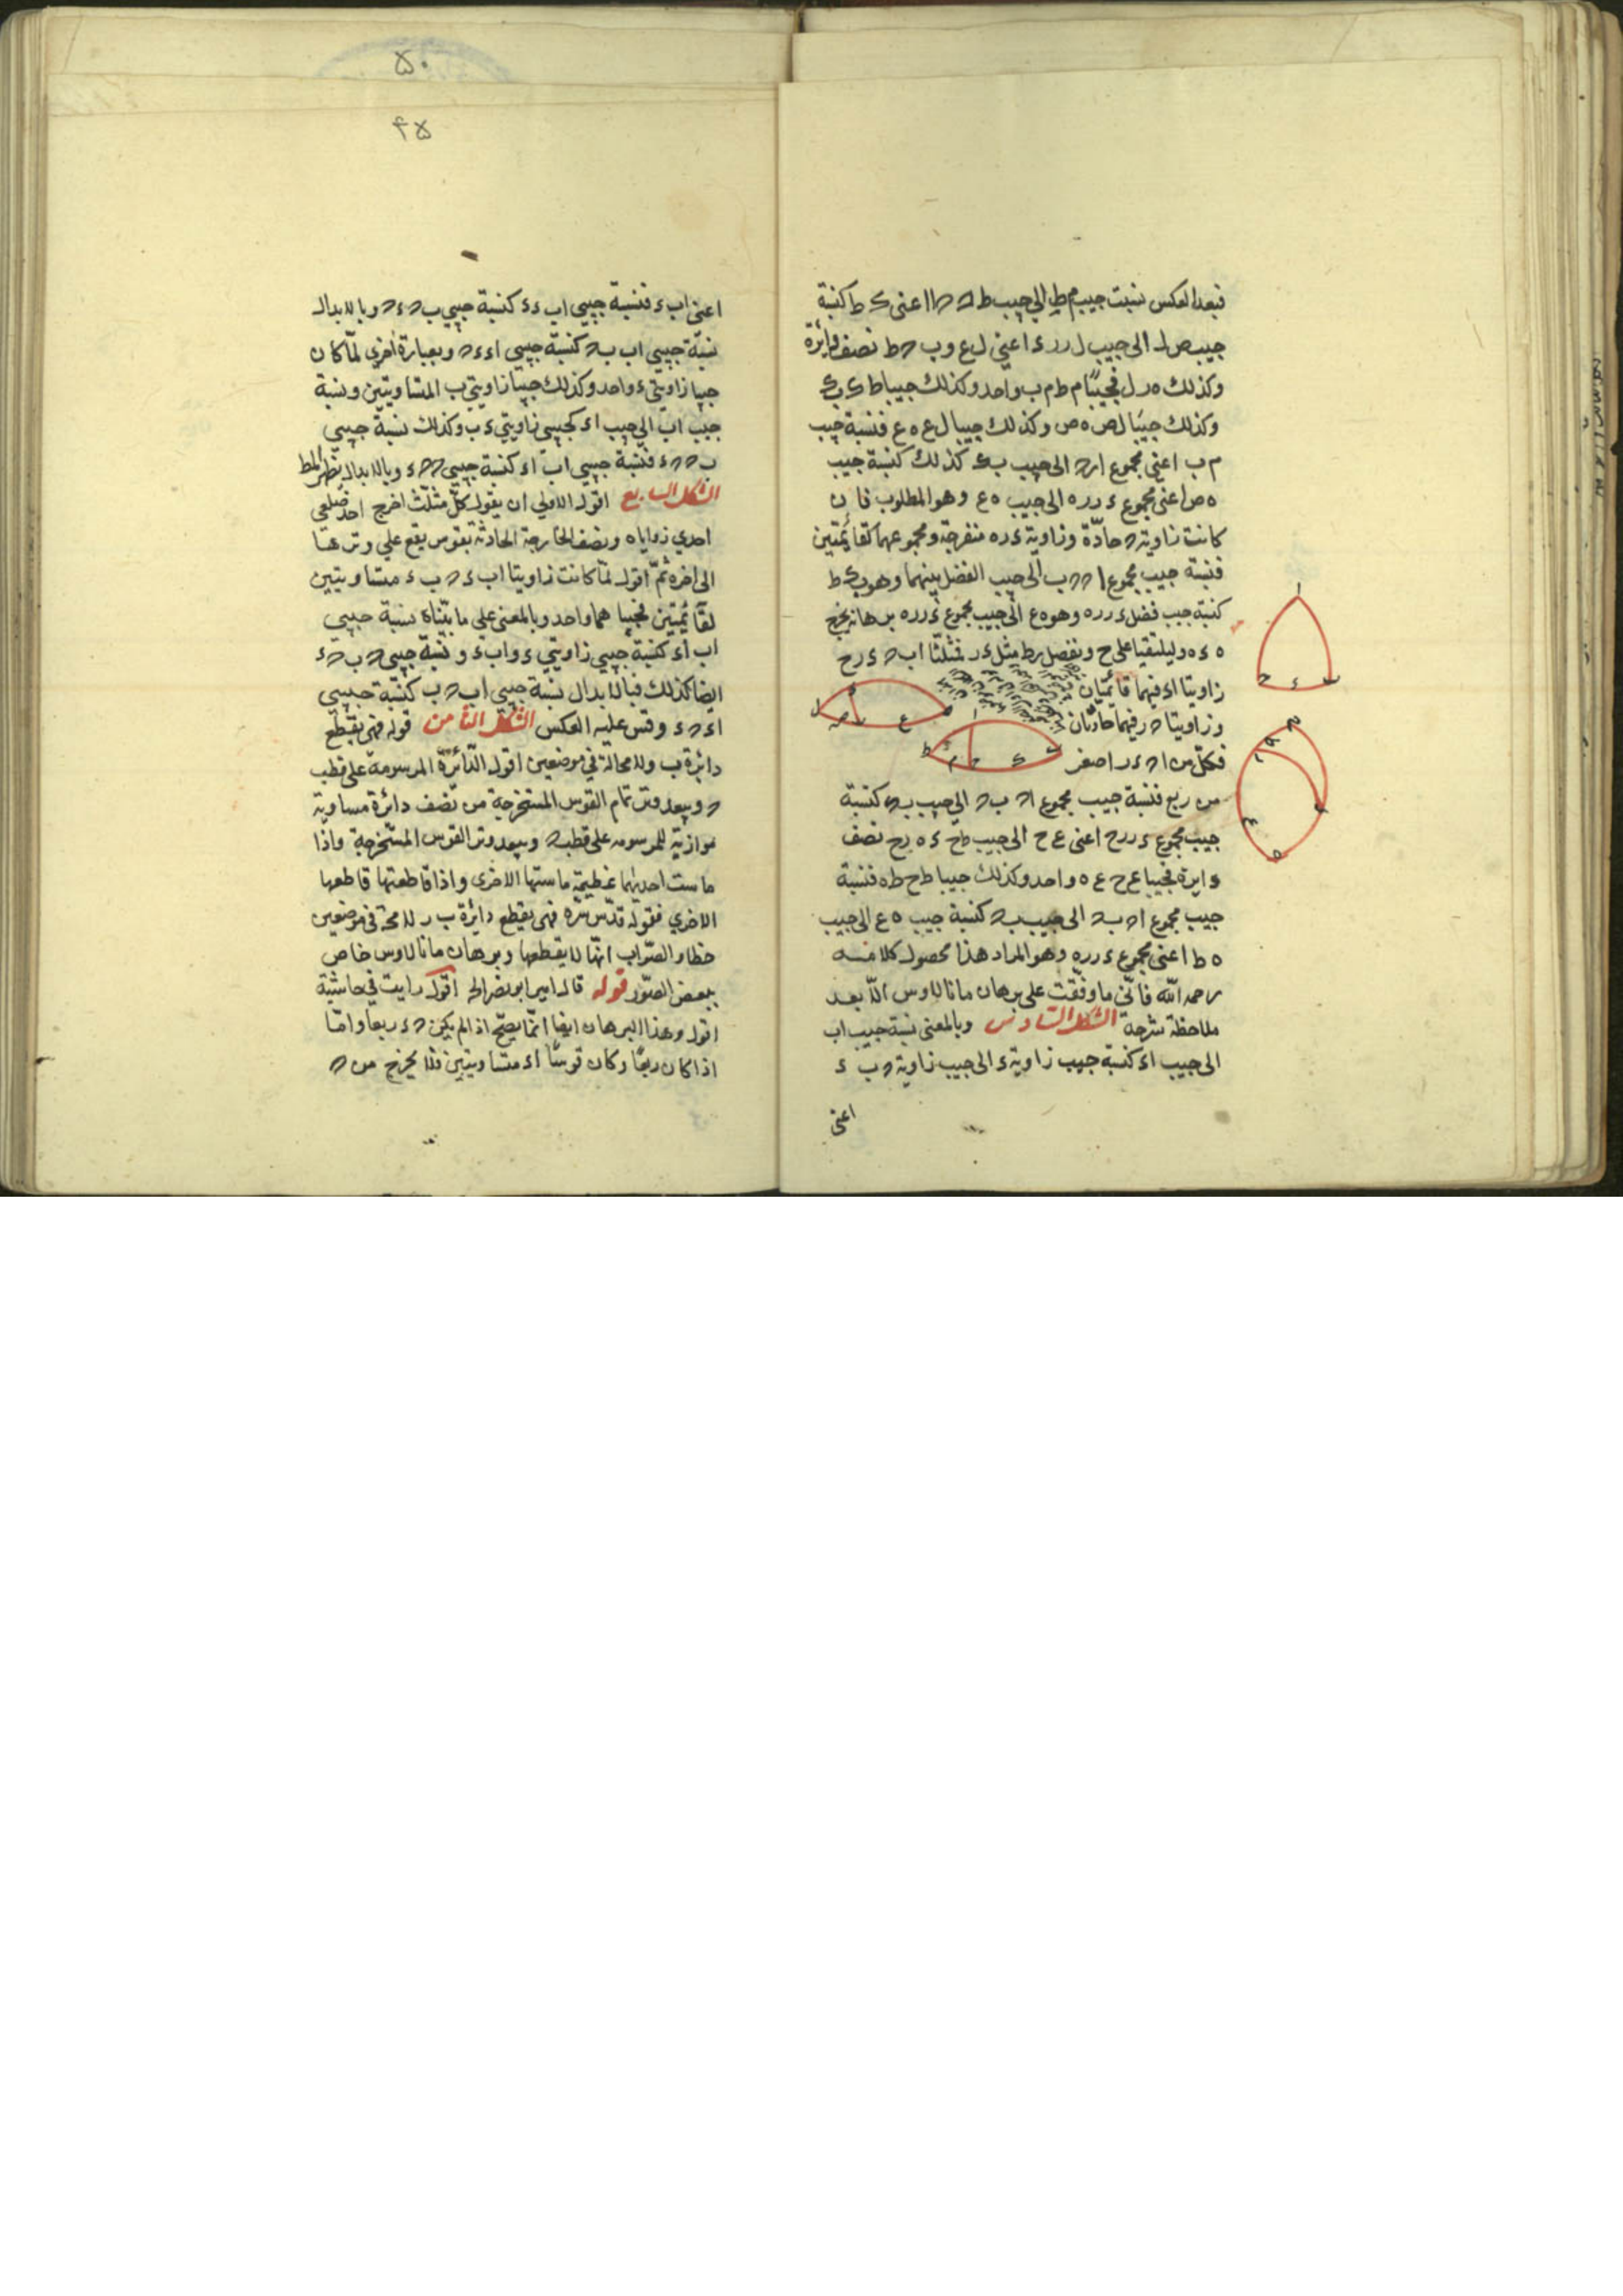 فبعد العكس نسبت جيب م ط الى جيب ط ح ا اعنى ك ط كنسبة
جيب ص ل الى جيب ل ر ر ء اعنى ل ع و ب ح ط نصف دايرة
وكذلك ه ر ل فجيبا م ط م ب واحد وكذلك جيبا ط ك ب ك
وكذلك جيبا ل ص ه ص وكذلك جيبا ل ع ه ع فنسبة جيب
م ب اعنى مجموع ا ب ح الى جيب ب ك كذلك كنسبة جيب
ه ص اعنى مجموع ء ر ر ه الى جيب ه ع وهو المطلوب فان
كانت زاوية ح حادّة وزاوية ء ر ه منفرجة ومجموعهما كقائمتين
فنسبة جيب مجموع ا ح ح ب الى جيب الفضل بينهما وهو ب ك ط
كنسبة جيب فضل ء ر ر ه وهو ه ع الى جيب مجموع ء ر ر ه برهانه يخرج
ه ء ه ر ليلتقيا على ح ونفصل ر ط مثل ء ر فمثلثا ا ب ح ء ر ح
زاويتا ا ء فيهما قائمتان
وزاويتا ح ر فيهما حادتان
فكل من ا ح ء ر اصغر
من ربع فنسبة جيب مجموع ا ح ب ح الى جيب ب ك كنسبة
جيب مجموع ء ر ر ح اعنى ع ح الى جيب ط ح ء ه ر ح نصف
دايرة فجيبا ع ح ع ه واحد وكذلك جيبا ط ح ط ه فنسبة
جيب مجموع ا ح ب ح الى جيب ب ك كنسبة جيب ه ع الى جيب
ه ط اعنى مجموع ء ر ر ه وهو المراد هذا محصول كلامه
رحمه الله فانّى ما وفّقت على برهان مانالاوس الّا بعد
ملاحظة شرحه الشكل السادس وبالمعنى نسبة جيب ا ب
الى جيب ا ء كنسبة جيب زاوية ء الى جيب زاوية ح ب ء
اعنى
ا
ح ء ب
ل ع ه
ا
ط م ح ك ب
ح
ط
ر
ء
ع
ه
۵۰
۴۵
اعنى ا ب ء فنسبة جيبى ا ب ء ء كنسبة جيبى ب ح ء ح وبالابدال
نسبة جيبى ا ب ب ح كنسبة جيبى ا ء ء ح وبعبارة اخرى لمّا كان
جيبا زاويتى ء واحد وكذلك جيبا زاويتى ب المتساويتين ونسبة
جيب ا ب الى جيب ا ء كجيبى زاويتى ء ب وكذلك نسبة جيبى
ب ح ح ء فنسبة جيبى ا ب ا ء كنسبة جيبى ب ح ح ء وبالابدال يظهر المط
الشكل السابع اقول الاولى ان يقول كلّ مثلّث اخرج احد ضلعى
احدى زواياه ونصف الخارجة الحادثة بقوس يقع على وترها
الى اخره ثمّ اقول لمّا كانت زاويتا ا ب ء ح ب ء متساويتين
لقائمتين فجيباهما واحد وبالمعنى على ما بيّناه نسبة جيبى
ا ب ا ء كنسبة جيبى زاويتى ء و ا ب ء ونسبة جيبى ح ب ح ء
ايضا كذلك فبالابدال نسبة جيبى ا ب ح ب كنسبة جيبى
ا ء ح ء وقس عليه العكس الشكل الثامن قوله فهى يقطع
دائرة ب ولامحالة فى موضعين اقول الدّائرة المرسومة على قطب
ح وببعد وتر تمام القوس المستخرجة من نصف دائرة مساوية
موازية للمرسومه على قطب ح وببعد وتر القوس المستخرجة واذا
ماست احديهما عظيمة ماستها الاخرى واذا قاطعتها قاطعها
الاخرى فقوله قدّس سرّه فهى يقطع دائرة ب ر لا محة فى موضعين
خطا والصّواب انّها لا يقطعها وبرهان مانالاوس خاص
ببعض الصّور قوله قال امير ابو نصر الخ اقول رايت فى حاشية
اقول وهذا البرهان ايضا انّما يصحّ اذ الم يكن ح ء ربعا وامّا
اذا كان ربعًا وكان قوسًا ا ء متساويتين فلا يخرج من ح